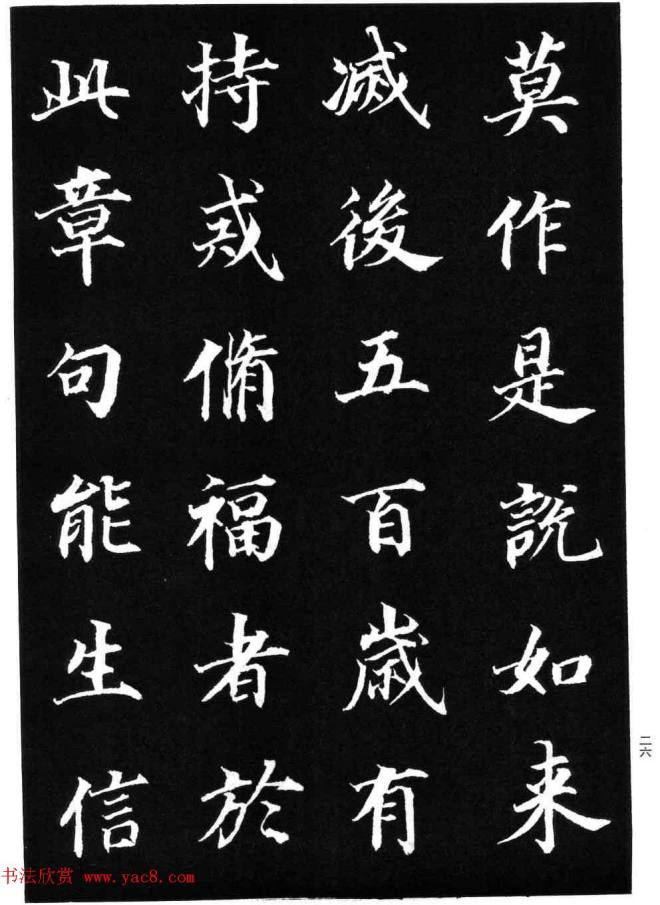 莫作是説如来
滅後五百歳有
持戒脩福者於
此章句能生信
二六
书法欣赏 www.yac8.com